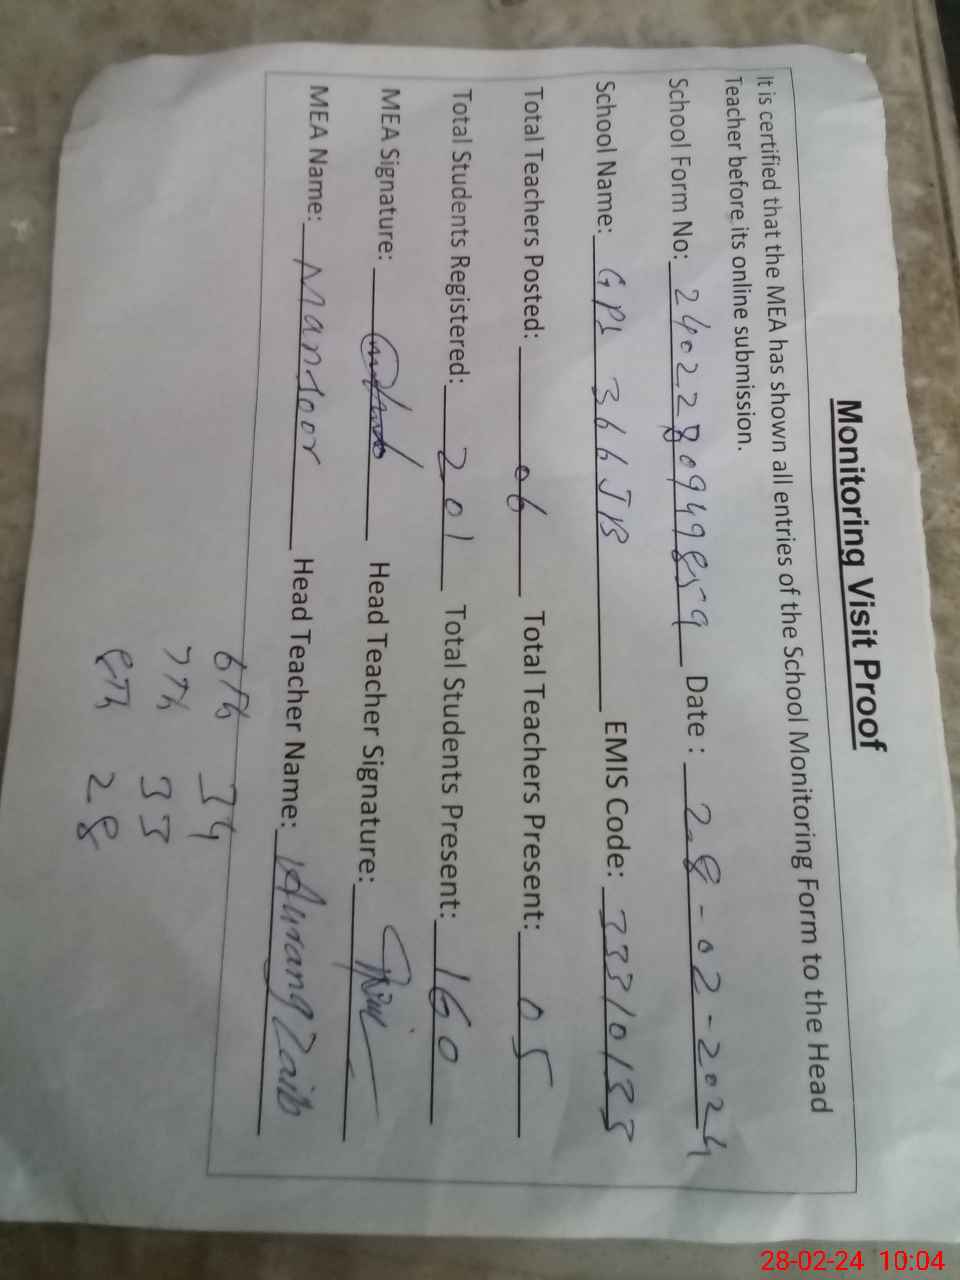 Monitoring Visit Proof
It is certified that the MEA has shown all entries of the School Monitoring Form to the Head
Teacher before its online submission.
School Form No: 2402280949859 Date : 28-02-2024
School Name: GPS 366JB EMIS Code: 33310133
Total Teachers Posted: 06 Total Teachers Present: 05
Total Students Registered: 201 Total Students Present: 160
MEA Signature: Head Teacher Signature:
MEA Name: Mansoor Head Teacher Name: Aurang Zaib
6th 34
7th 33
8th 28
28-02-24 10:04